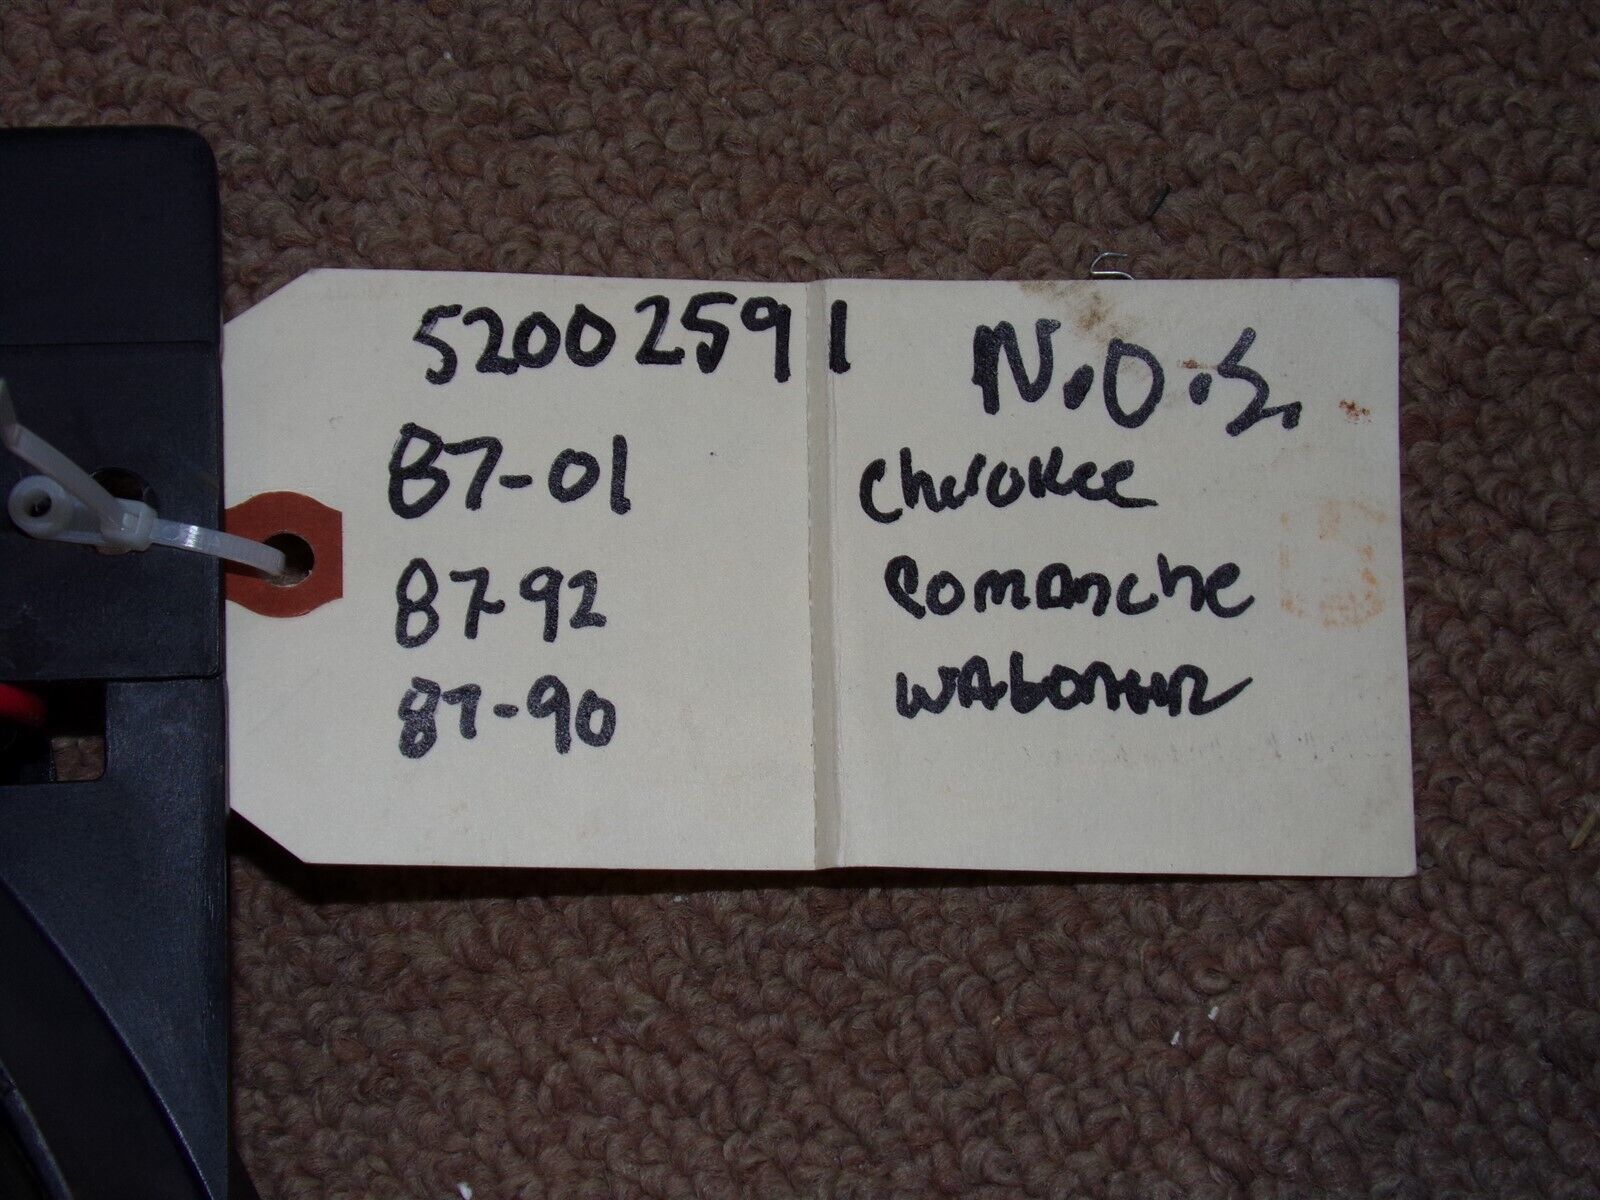 52002591 N.O.S.
87-01 Cherokee
87-92 Comanche
87-90